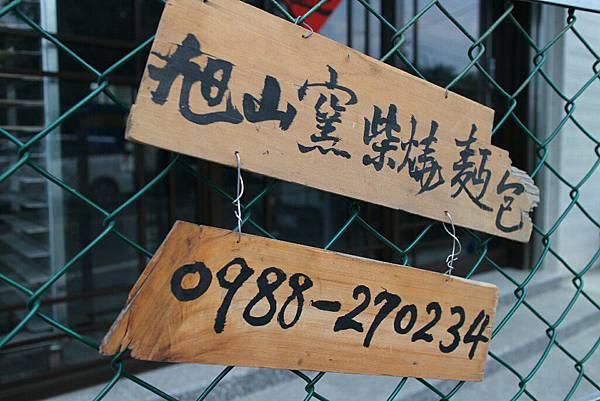 旭山窯柴燒麵包
0988-270234